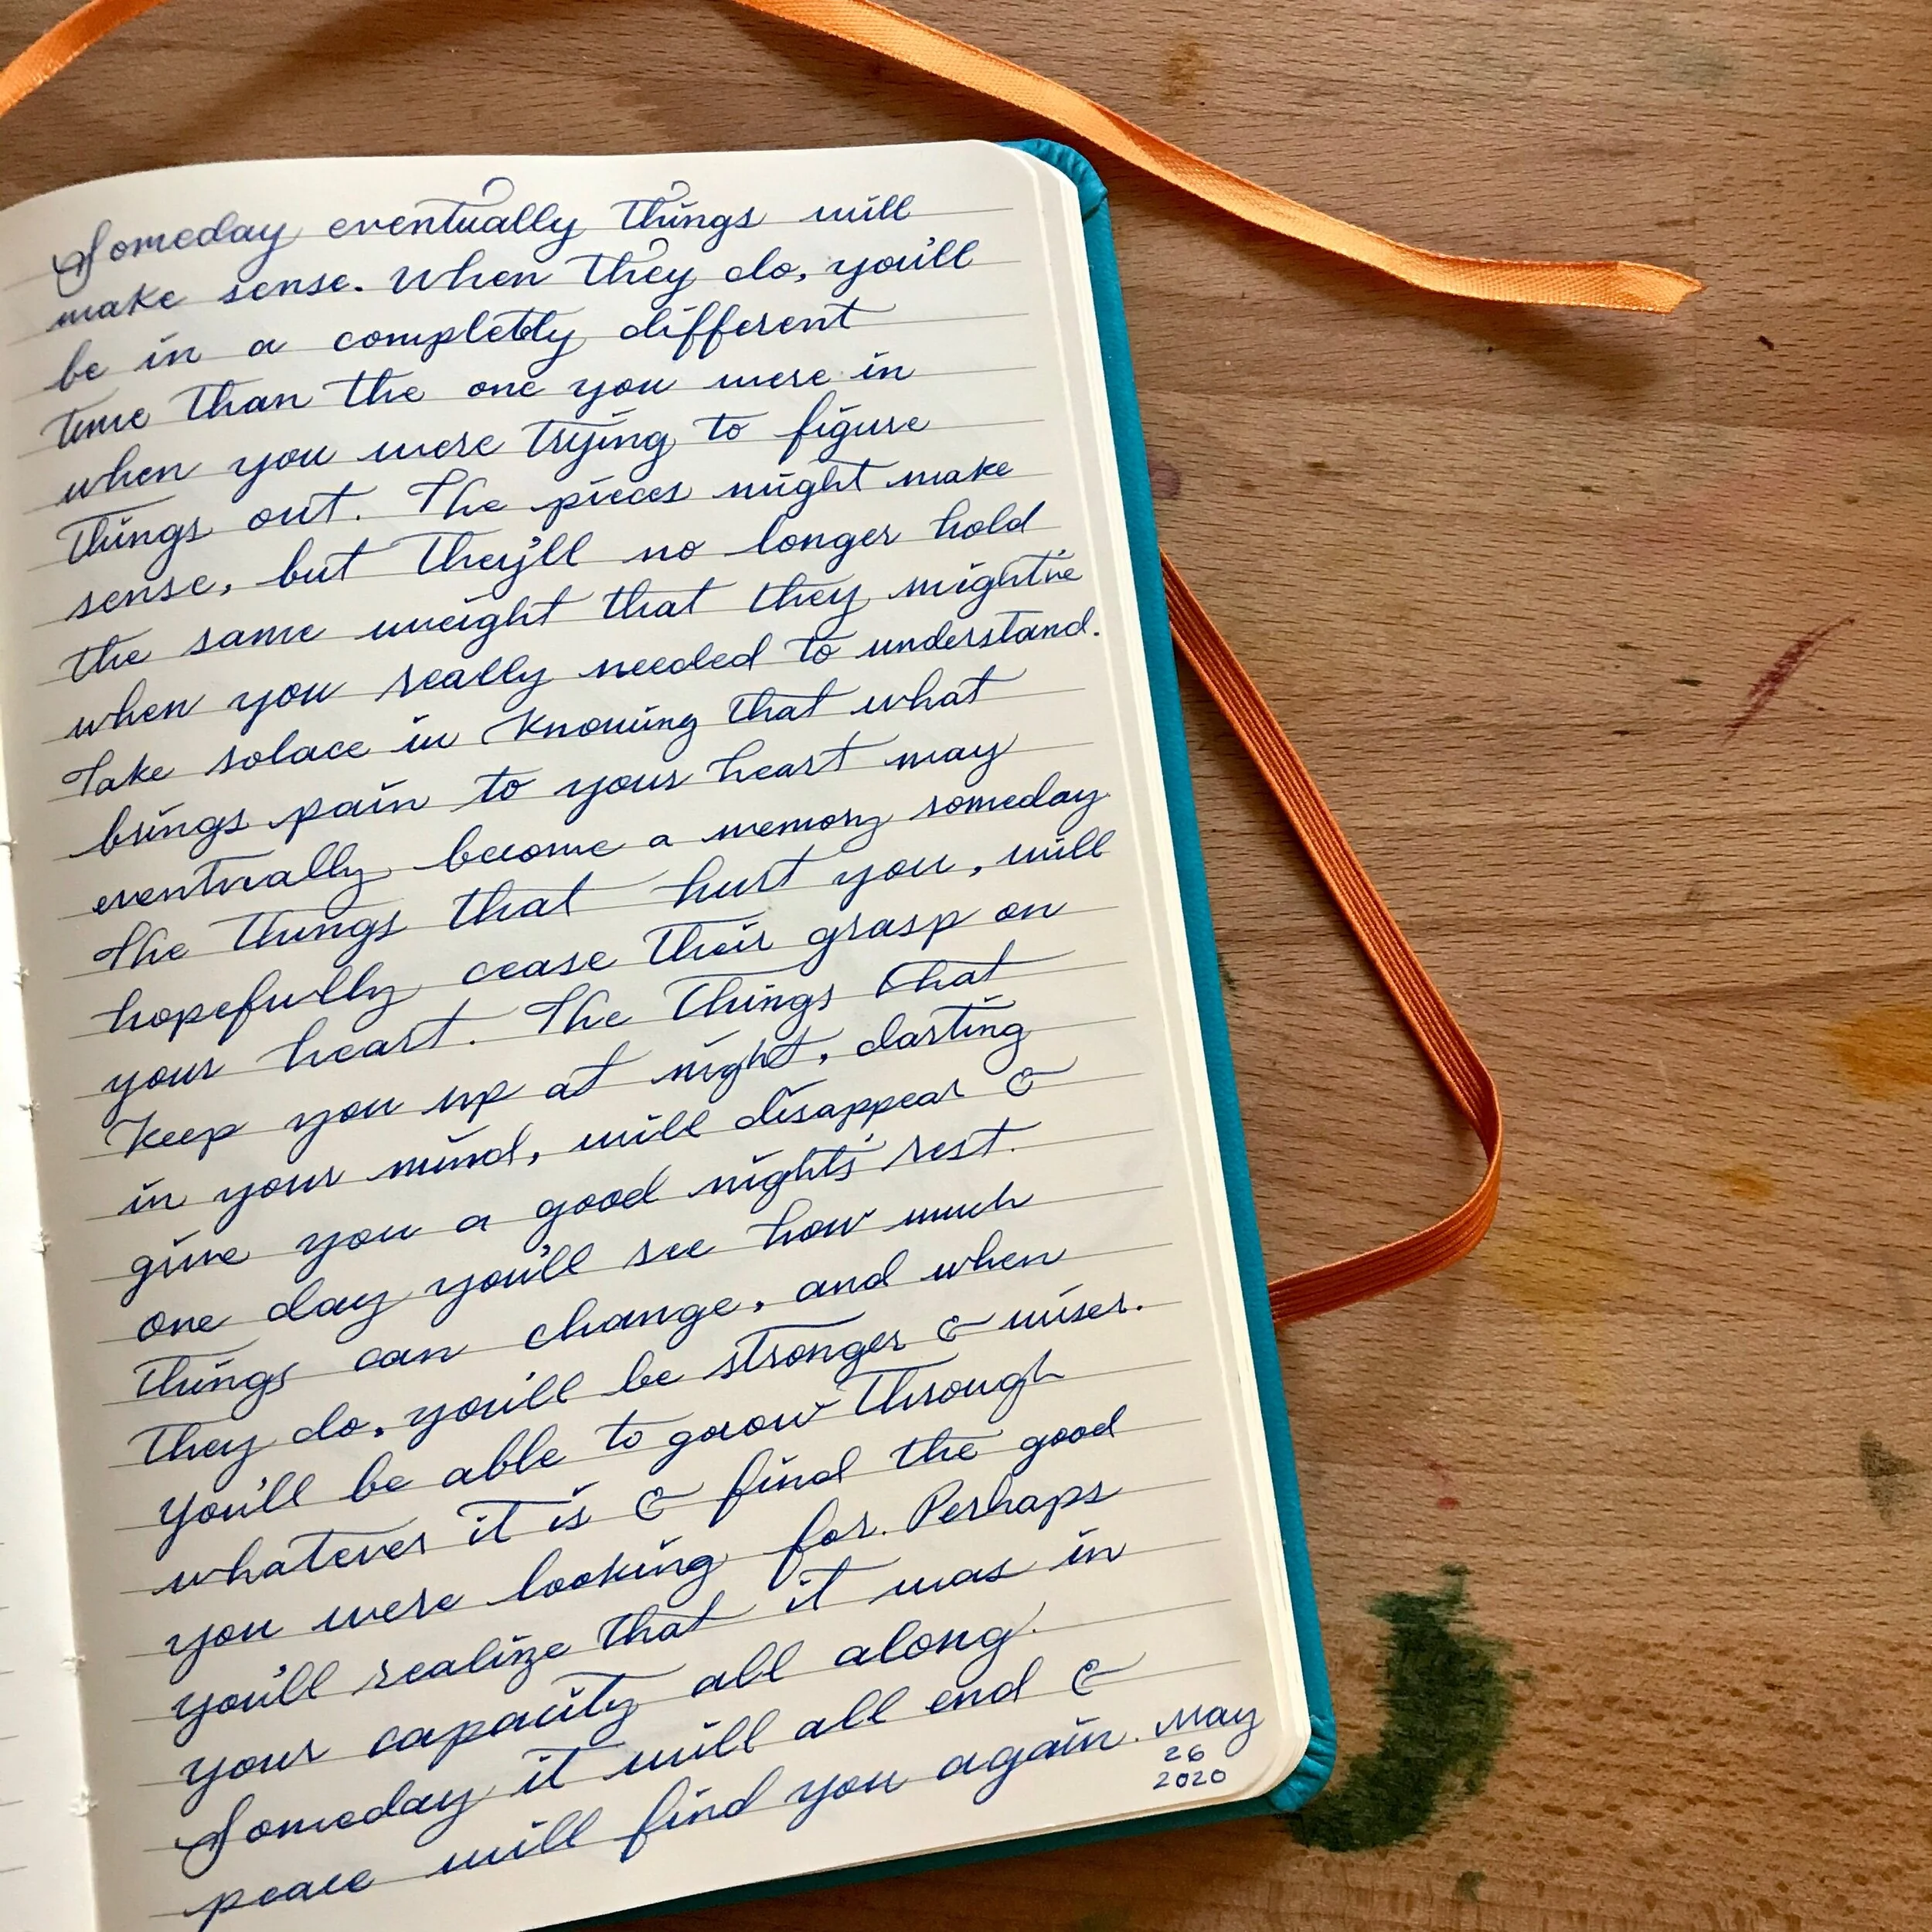 Someday eventually things will
make sense. When they do, you'll
be in a completly different
time than the one you were in
when you were trying to figure
things out. The pieces might make
sense, but they'll no longer hold
the same weight that they might've
when you really needed to understand.
Take solace in knowing that what
brings pain to your heart may
eventually become a memory someday.
The things that hurt you, will
hopefully cease their grasp on
your heart. The things that
keep you up at night, darting
in your mind, will disappear &
give you a good nights' rest.
one day you'll see how much
things can change, and when
they do, you'll be stronger & wiser.
You'll be able to grow through
whatever it is & find the good
you were looking for. Perhaps
you'll realize that it was in
your capacity all along.
Someday it will all end &
peace will find you again. May
26
2020